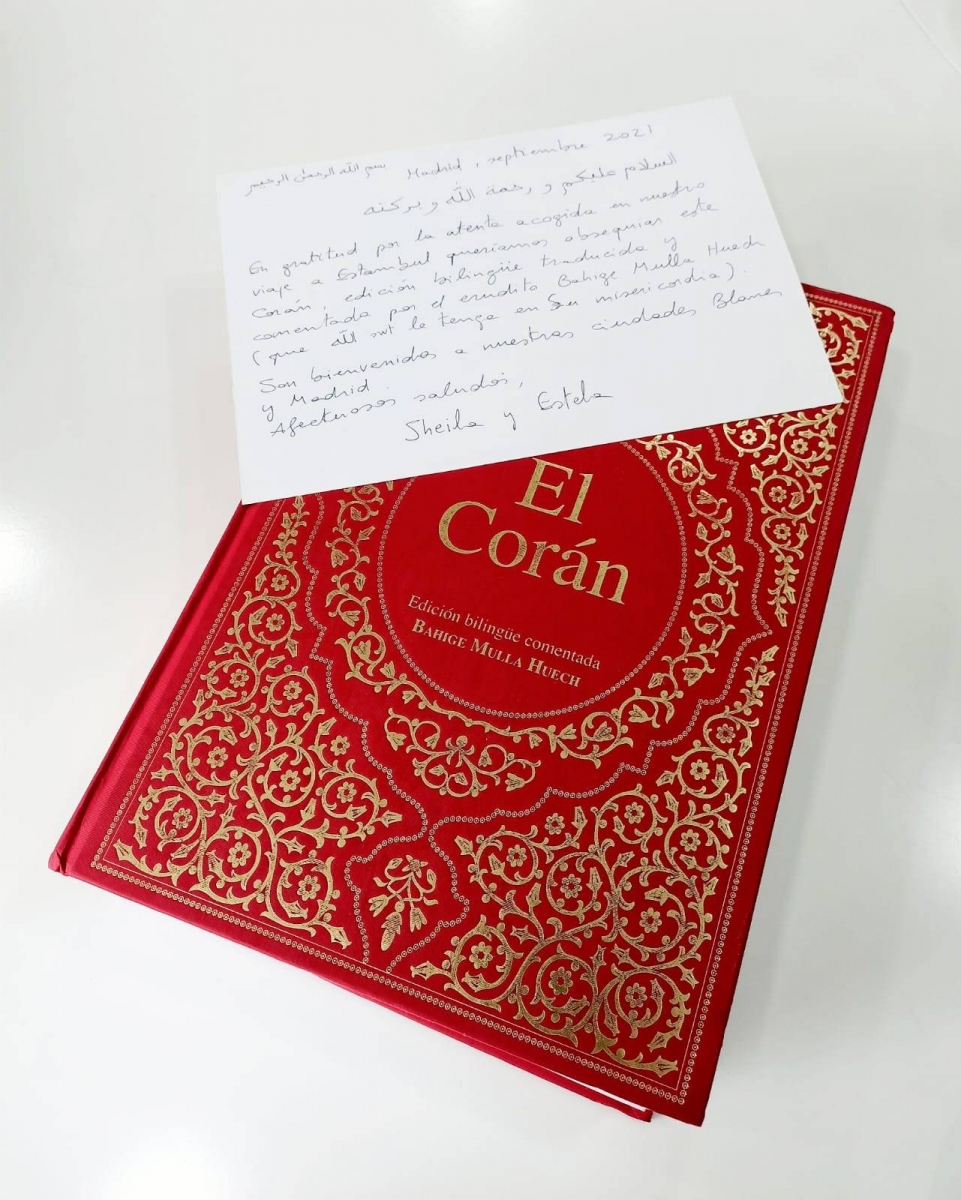 بسم الله الرحمن الرحيم
Madrid, septiembre 2021
السلام عليكم و رحمة الله و بركته
En gratitud por la atenta acogida en nuestro
viaje a Estambul queríamos obsequiar este
Corán, edición bilingüe traducida y
comentada por el erudito Bahige Mulla Huech
(que الله swt le tenga en Su misericordia).
Son bienvenidos a nuestras ciudades Blanes
y Madrid.
Afectuosos saludos,
Sheila y Estela
El
Corán
Edición bilingüe comentada
BAHIGE MULLA HUECH